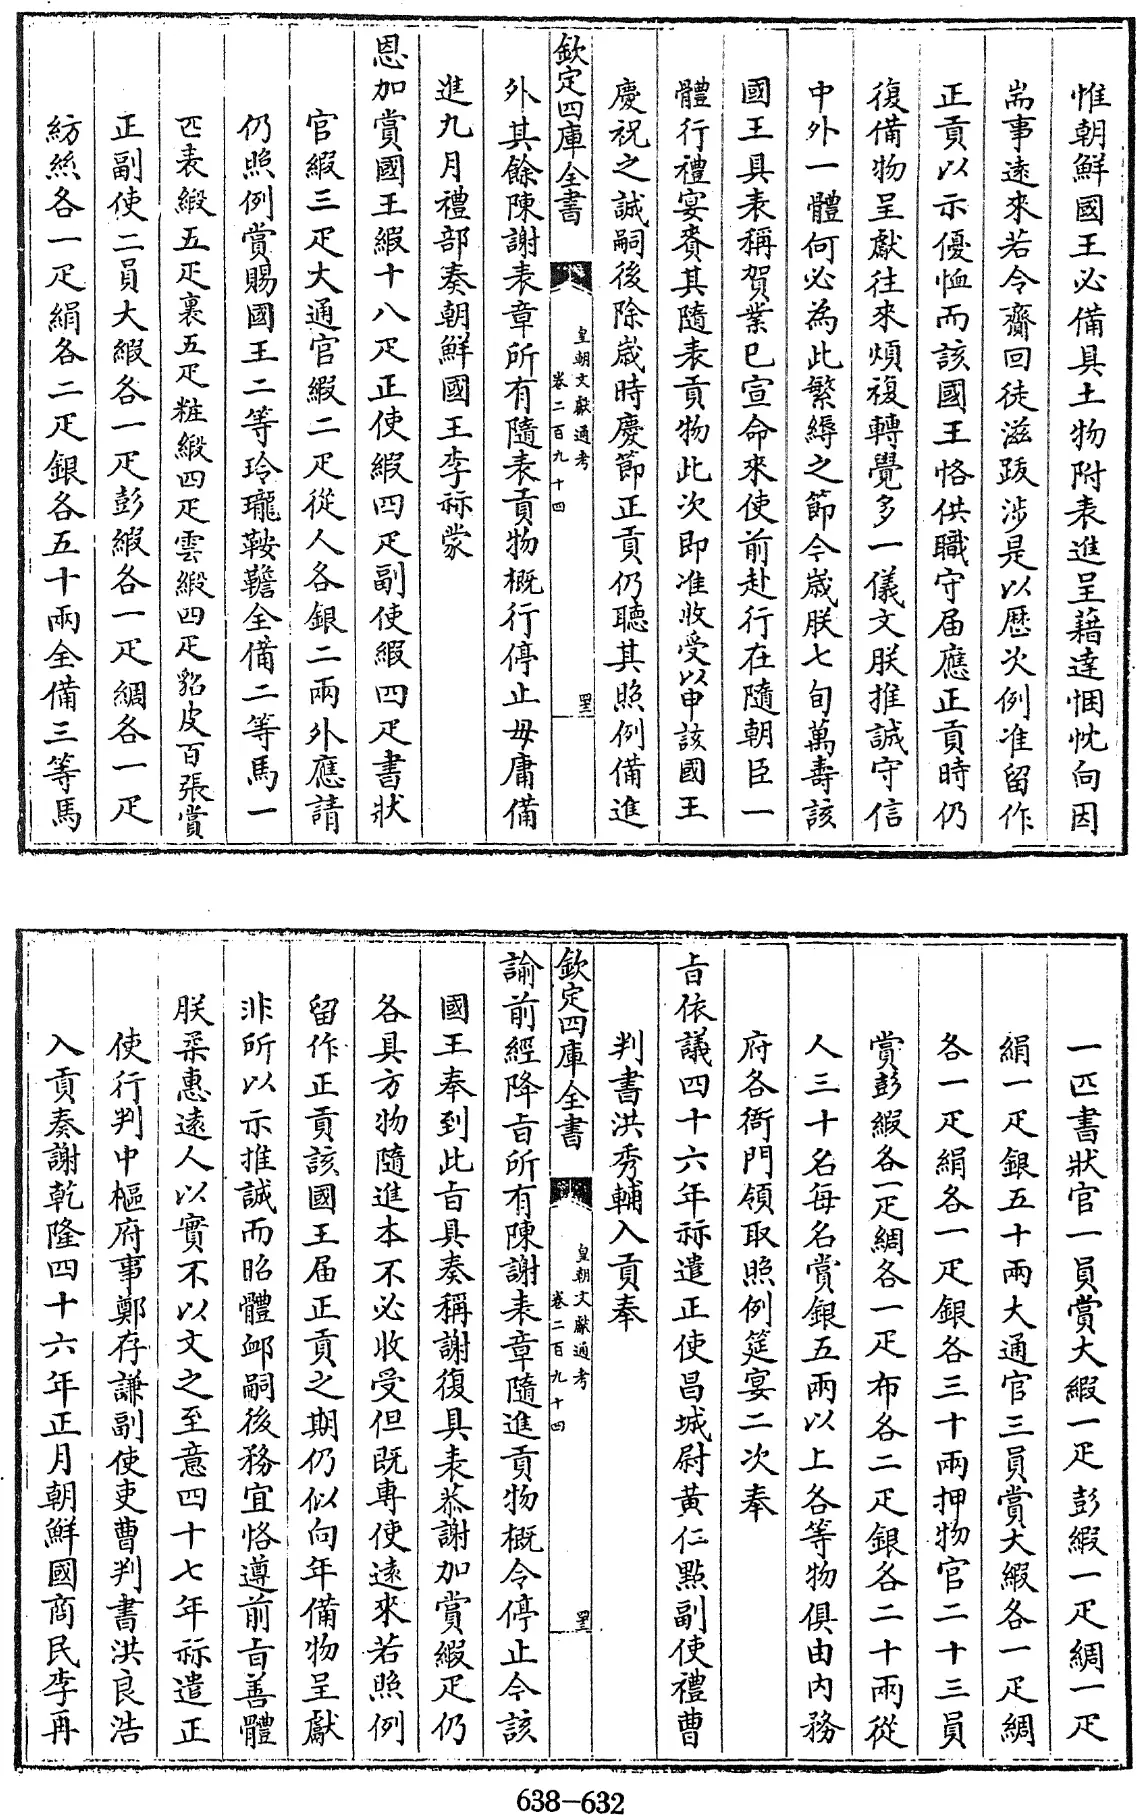 惟朝鮮國王必備具土物附表進呈藉達悃忱向因
耑事遠來若令齎回徒滋跋涉是以歴次例准留作
正貢以示優恤而該國王恪供職守届應正貢時仍
復備物呈獻往來煩複轉覺多一儀文朕推誠守信
中外一體何必為此繁縟之節今歲朕七旬萬壽該
國王具表稱賀業已宣命來使前赴行在隨朝臣一
體行禮宴賚其隨表貢物此次即准收受以申該國王
慶祝之誠嗣後除歲時慶節正貢仍聽其照例備進
欽定四庫全書
皇朝文獻通考
卷二百九十四
外其餘陳謝表章所有隨表貢物概行停止毋庸備
進九月禮部奏朝鮮國王李祘蒙
恩加賞國王緞十八疋正使緞四疋副使緞四疋書狀
官緞三疋大通官緞二疋從人各銀二兩外應請
仍照例賞賜國王二等玲瓏鞍韂全備二等馬一
匹表緞五疋裏五疋粧緞四疋雲緞四疋貂皮百張賞
正副使二員大緞各一疋彭緞各一疋綢各一疋
紡絲各一疋絹各二疋銀各五十兩全備三等馬
一匹書狀官一員賞大緞一疋彭緞一疋綢一疋
絹一疋銀五十兩大通官三員賞大緞各一疋綢
各一疋絹各一疋銀各三十兩押物官二十三員
賞彭緞各一疋綢各一疋布各二疋銀各二十兩從
人三十名每名賞銀五兩以上各等物俱由内務
府各衙門領取照例筵宴二次奉
㫖依議四十六年祘遣正使昌城尉黃仁㸃副使禮曹
判書洪秀輔入貢奉
欽定四庫全書
皇朝文獻通考
卷二百九十四
諭前經降㫖所有陳謝表章隨進貢物概令停止今該
國王奉到此㫖具奏稱謝復具表恭謝加賞緞疋仍
各具方物隨進本不必收受但既專使遠來若照例
留作正貢該國王届正貢之期仍似向年備物呈獻
非所以示推誠而昭體卹嗣後務宜恪遵前㫖善體
朕柔惠遠人以實不以文之至意四十七年祘遣正
使行判中樞府事鄭存謙副使吏曹判書洪良浩
入貢奏謝乾隆四十六年正月朝鮮國商民李再
638-632